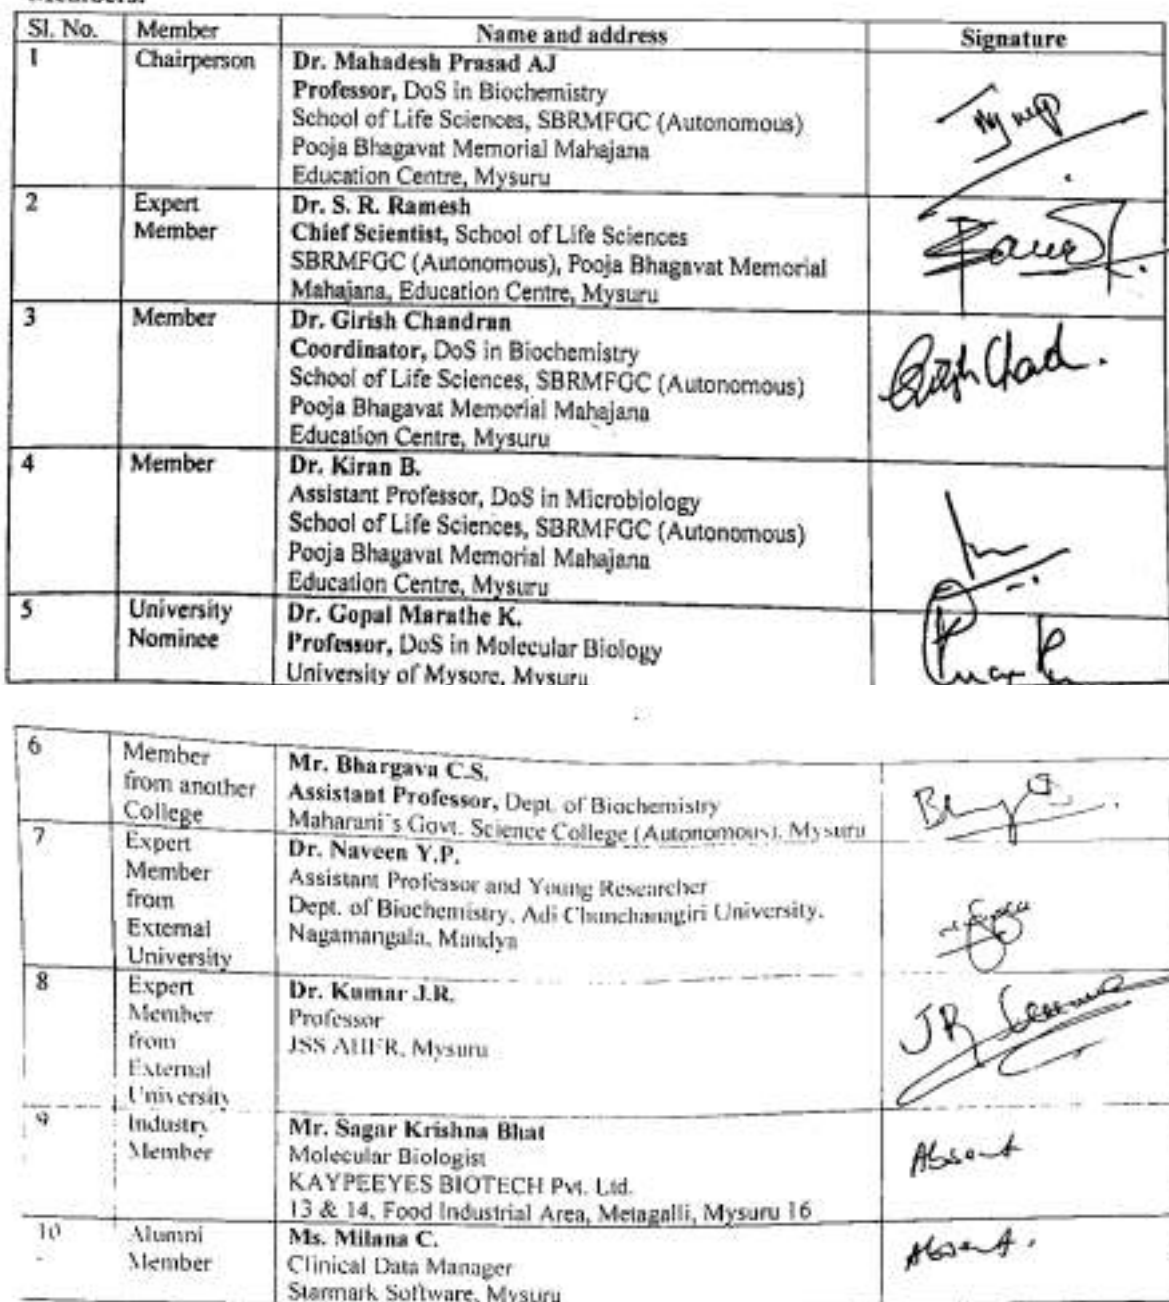 Sl. No. Member Name and address Signature
1 Chairperson Dr. Mahadesh Prasad AJ
Professor, DoS in Biochemistry
School of Life Sciences, SBRMFGC (Autonomous)
Pooja Bhagavat Memorial Mahajana
Education Centre, Mysuru
2 Expert Dr. S. R. Ramesh
Member Chief Scientist, School of Life Sciences
SBRMFGC (Autonomous), Pooja Bhagavat Memorial
Mahajana, Education Centre, Mysuru
3 Member Dr. Girish Chandran
Coordinator, DoS in Biochemistry
School of Life Sciences, SBRMFGC (Autonomous)
Pooja Bhagavat Memorial Mahajana
Education Centre, Mysuru
4 Member Dr. Kiran B.
Assistant Professor, DoS in Microbiology
School of Life Sciences, SBRMFGC (Autonomous)
Pooja Bhagavat Memorial Mahajana
Education Centre, Mysuru
5 University Dr. Gopal Marathe K.
Nominee Professor, DoS in Molecular Biology
University of Mysore, Mysuru
6 Member Mr. Bhargava C.S.
from another Assistant Professor, Dept. of Biochemistry
College Maharani's Govt. Science College (Autonomous), Mysuru
7 Expert Dr. Naveen Y.P.
Member Assistant Professor and Young Researcher
from Dept. of Biochemistry, Adi Chunchanagiri University,
External Nagamangala, Mandya
University
8 Expert Dr. Kumar J.R.
Member Professor
from JSS AHER, Mysuru
External
University
9 Industry Mr. Sagar Krishna Bhat
Member Molecular Biologist Absent
KAYPEEYES BIOTECH Pvt. Ltd.
13 & 14, Food Industrial Area, Metagalli, Mysuru 16
10 Alumni Ms. Milana C. Absent.
Member Clinical Data Manager
Starmark Software, Mysuru